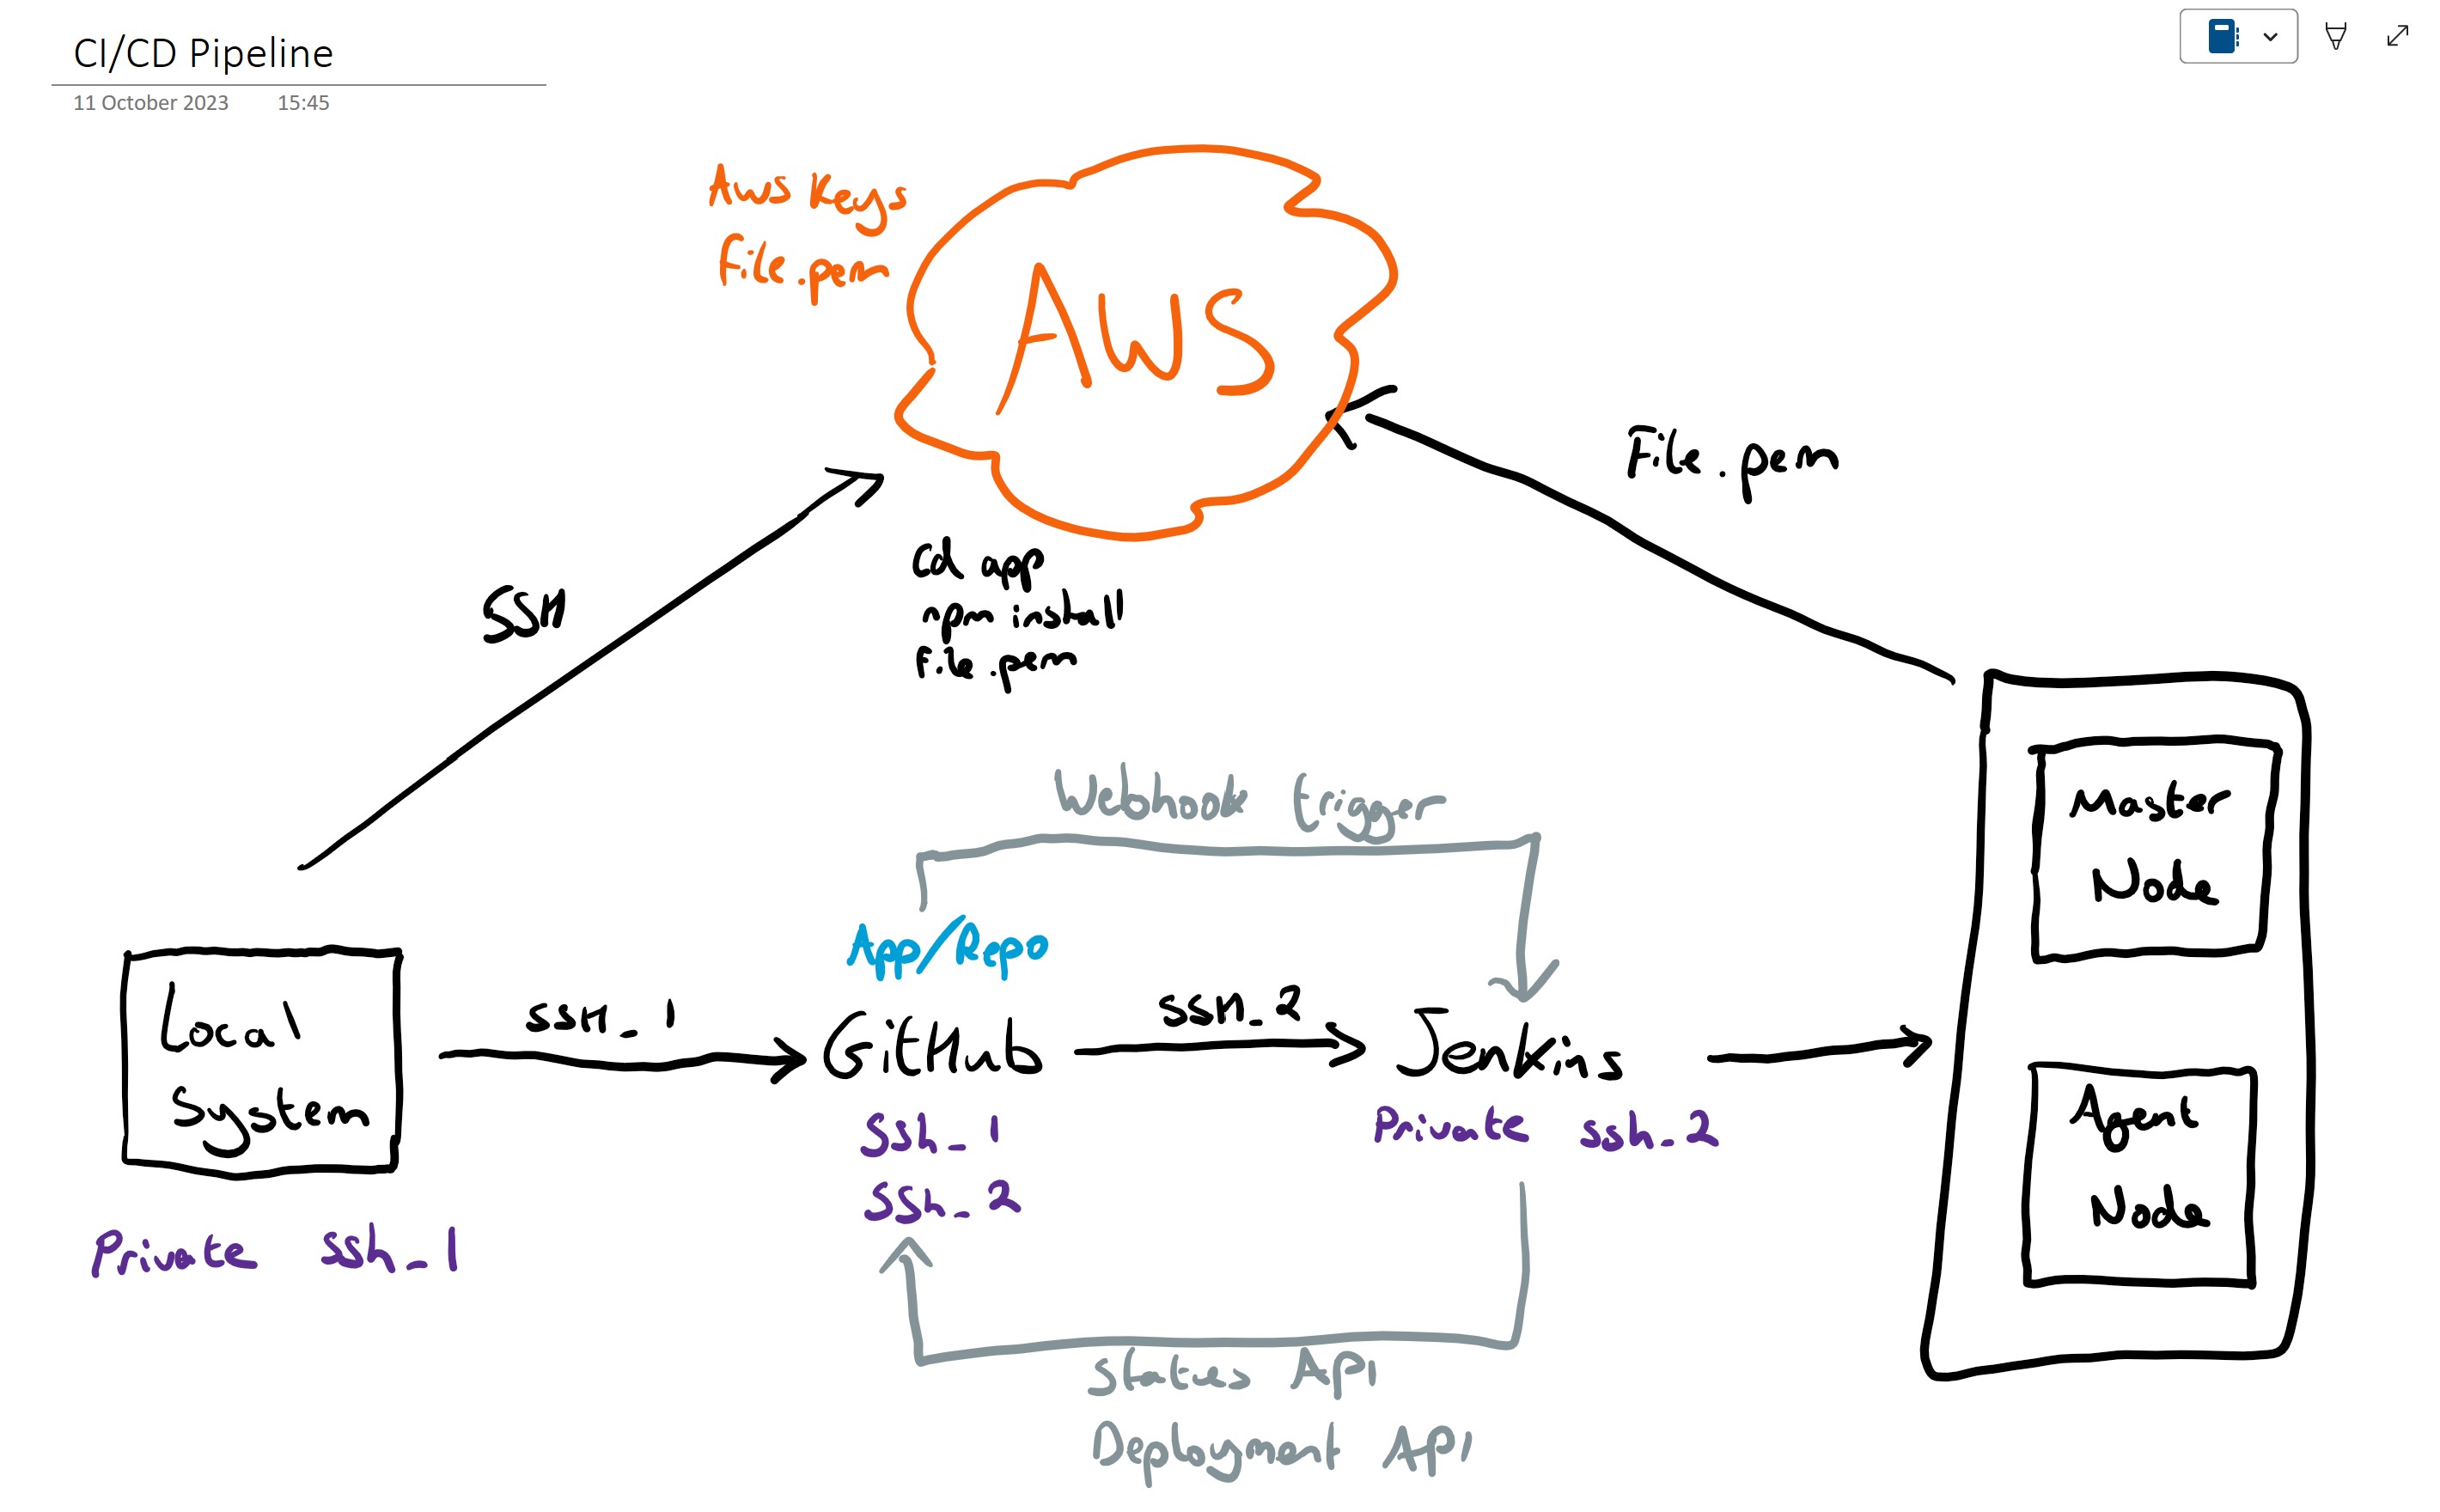 CI/CD Pipeline
11 October 2023 15:45
Aws Keys
File.pem
AWS
File.pem
SSH
cd app
npm install
File.pem
Webhook trigger
Master
Node
App/Repo
Local
System
SSH_1
GitHub
SSH_2
Jenkins
Agent
Node
Private ssh_1
Ssh_1
Ssh_2
Private ssh_2
Status API
Deployment API